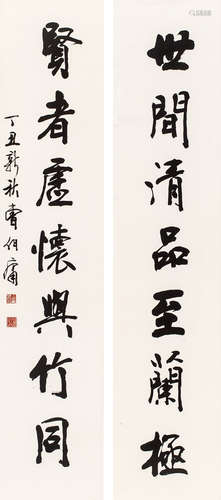 世間清品至蘭極
賢者虛懷與竹同
丁丑新秋曹伯庸